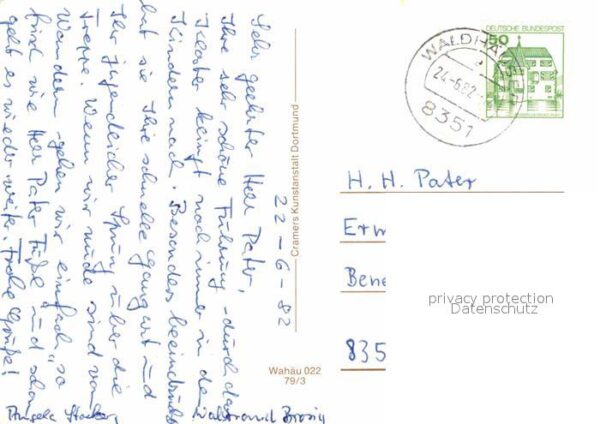 22-6-82
Sehr geehrter Herr Pater,
Ihre sehr schöne Führung durch das
Kloster klingt noch immer in den
Kindern nach. Besonders beeindruckt
hat sie Ihre schnelle Gangart und
Ihr jugendlicher Sprung über die
Treppe. Wenn wir müde sind vom
Wandern - gehen wir einfach "so
frisch wie Herr Pater und schon
geht es wieder weiter. Frohe Grüße!
Angela Waltraud
Cramers Kunstanstalt Dortmund
Wahäu 022
79/3
DEUTSCHE BUNDESPOST
50
WALDHÄUSER
24.-6.82
8351
H. H. Pater
Erw
Bene
835
privacy protection
Datenschutz